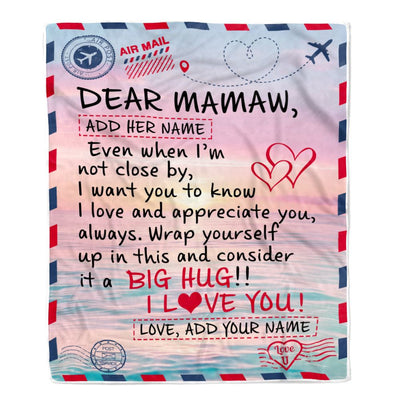 AIR MAIL
DEAR MAMAW,
ADD HER NAME
Even when I'm
not close by,
I want you to know
I love and appreciate you,
always. Wrap yourself
up in this and consider
it a BIG HUG!!
I L❤VE YOU!
LOVE, ADD YOUR NAME
Love
U